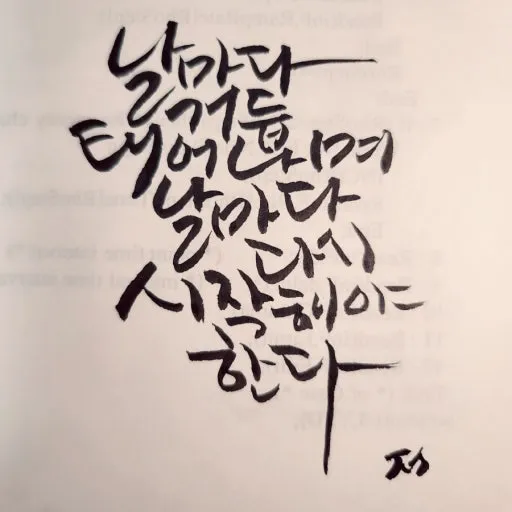 날마다
거듭
태어나며
날마다
다시
시작해야
한다
정